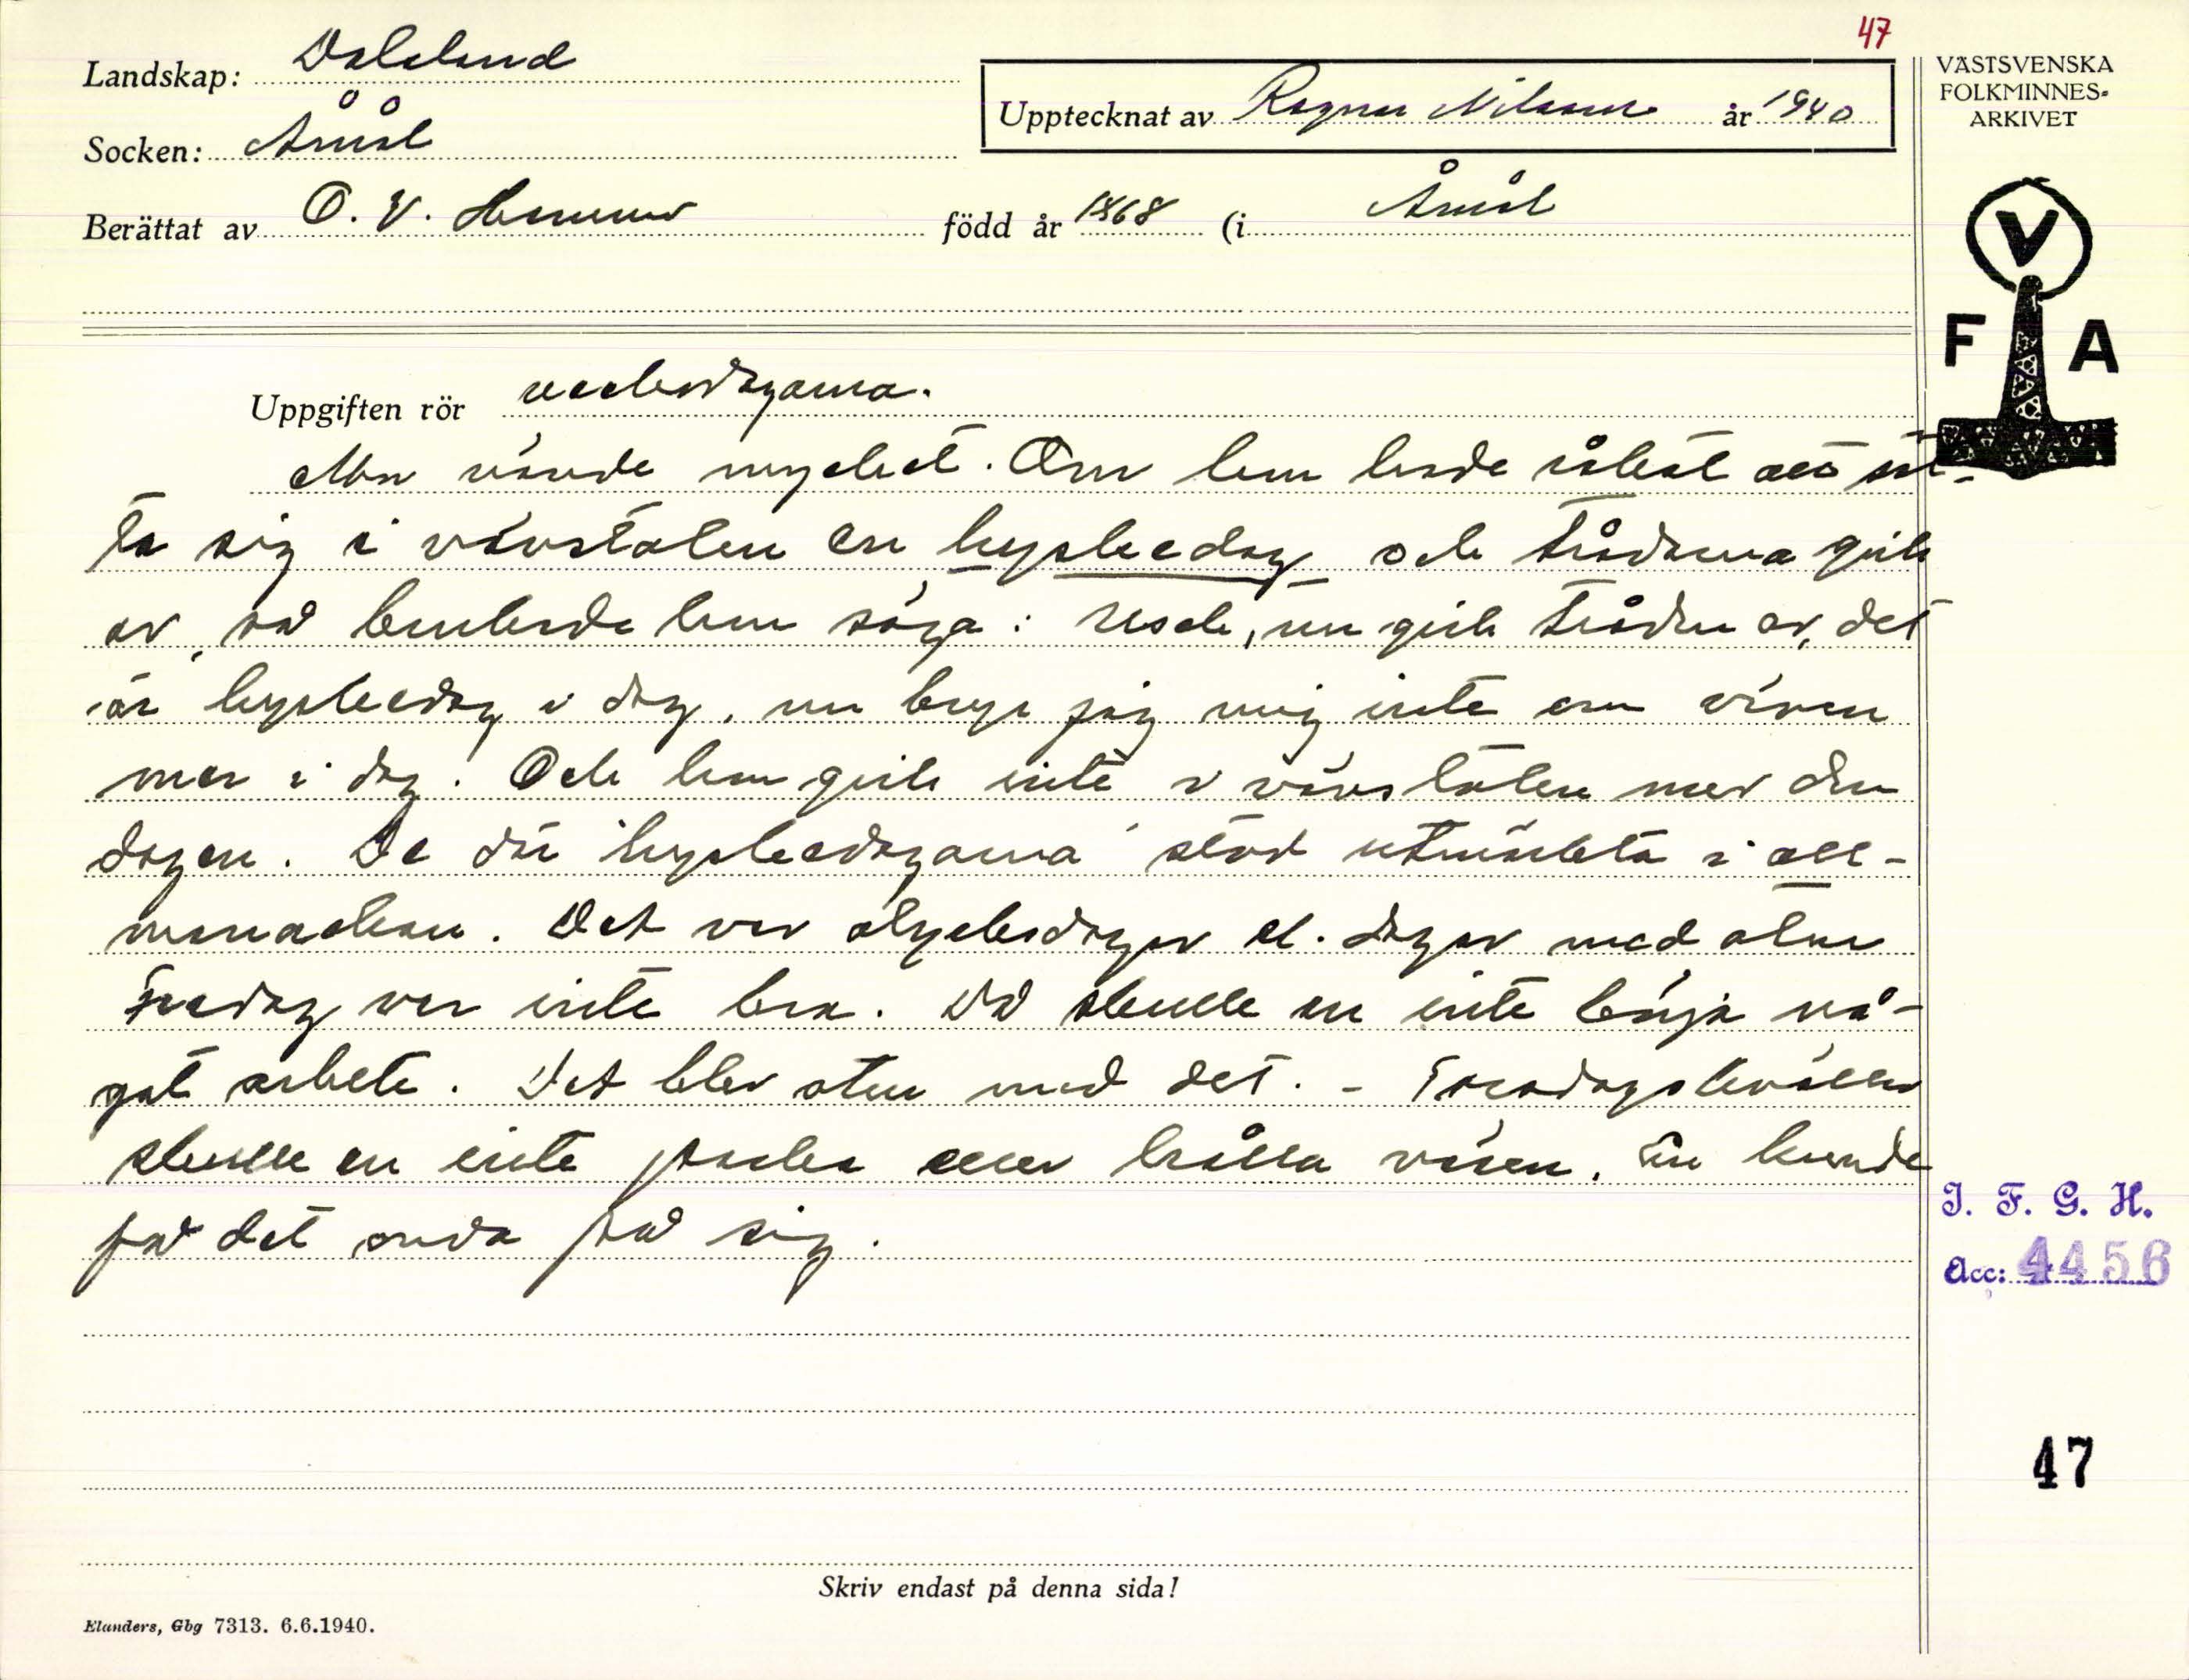 47
Landskap: Dalsland
Socken: Åmål
Upptecknat av Ragnar Nilsson år 1940
Berättat av O. V. född år 1868 (i Åmål
VÄSTSVENSKA
FOLKMINNES-
ARKIVET
V
F A
Uppgiften rör veckodagarna.
Man vävde mycket. Om hon hade råkat att sät-
ta sig i vävstolen en hyskedag och trådarna gick
av, så brukade hon säga: usch, nu gick tråden av, det
är hyskedag i dag, nu bryr jag mig inte om väven
mer i dag. Och hon gick inte i vävstolen mer den
dagen. De där hyskedagarna stod utmärkta i all-
manackan. Det var olycksdagar el. dagar med otur
Fredag var inte bra. Då skulle en inte börja nå-
got arbete. Det blev otur med det. - Torsdagskvällar
skulle en inte spola eller hålla väsen. En kunde
få det onda på sig.
I. F. G. H.
Acc: 4456
47
Skriv endast på denna sida!
Elanders, Gbg 7313. 6.6.1940.